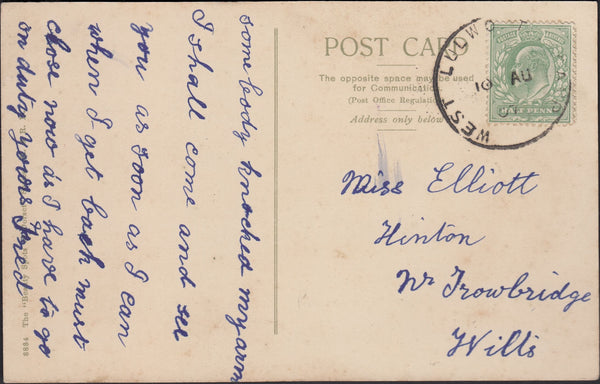 somebody knocked my arm
I shall come and see
you as soon as I can
when I get back must
close now as I have to go
on duty yours Fred
POST CARD
The opposite space may be used
for Communication
(Post Office Regulation)
Address only below
HALF PENNY
WEST LULWO
10 AU
Miss Elliott
Hinton
Nr Trowbridge
Wilts
6884 The